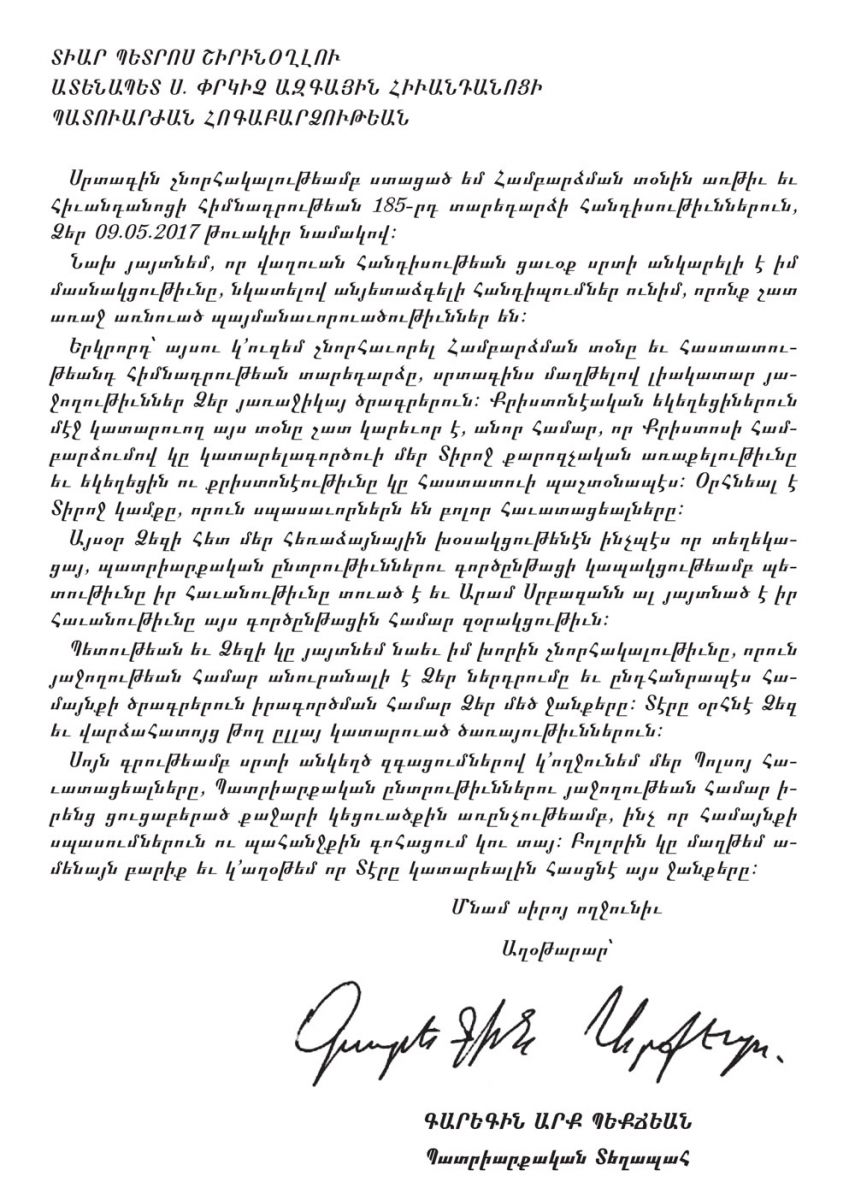 ՏԻԱՐ ՊԵՏՐՈՍ ՇԻՐԻՆՕՂԼՈՒ
ԱՏԵՆԱՊԵՏ Ս. ՓՐԿԻՉ ԱԶԳԱՅԻՆ ՀԻՒԱՆԴԱՆՈՑԻ
ՊԱՏՈՒԱՐԺԱՆ ՀՈԳԱԲԱՐՁՈՒԹԵԱՆ
Սրտագին շնորհակալութեամբ ստացած եմ Համբարձման տօնին առթիւ եւ
Հիւանդանոցի հիմնադրութեան 185-րդ տարեդարձի հանդիսութիւններուն,
Ձեր 09.05.2017 թուակիր նամակով:
Նախ յայտնեմ, որ վաղուան հանդիսութեան ցաւօք սրտի անկարելի է իմ
մասնակցութիւնը, նկատելով անյետաձգելի հանդիպումներ ունիմ, որոնք շատ
առաջ առնուած պայմանաւորուածութիւններ են:
Երկրորդ՝ այսու կ՚ուզեմ շնորհաւորել Համբարձման տօնը եւ Հաստատու-
թեանդ հիմնադրութեան տարեդարձը, սրտագինս մաղթելով լիակատար յա-
ջողութիւններ Ձեր յառաջիկայ ծրագրերուն: Քրիստոնէական եկեղեցիներուն
մէջ կատարուող այս տօնը շատ կարեւոր է, անոր համար, որ Քրիստոսի Համ-
բարձումով կը կատարելագործուի մեր Տիրոջ քարոզչական առաքելութիւնը
եւ եկեղեցին ու քրիստոնէութիւնը կը հաստատուի պաշտօնապէս: Օրհնեալ է
Տիրոջ կամքը, որուն սպասաւորներն են բոլոր հաւատացեալները:
Այսօր Ձեզի հետ մեր հեռաձայնային խօսակցութենէն ինչպէս որ տեղեկա-
ցայ, պատրիարքական ընտրութիւններու գործընթացի կապակցութեամբ պե-
տութիւնը իր հաւանութիւնը տուած է եւ Արամ Սրբազանն ալ յայտնած է իր
հաւանութիւնը այս գործընթացին համար զօրակցութիւն:
Պետութեան եւ Ձեզի կը յայտնեմ նաեւ իմ խորին շնորհակալութիւնը, որուն
յաջողութեան համար անուրանալի է Ձեր ներդրումը եւ ընդհանրապէս հա-
մայնքի ծրագրերուն իրագործման համար Ձեր մեծ ջանքերը: Տէրը օրհնէ Ձեզ
եւ վարձահատոյց թող ըլլայ կատարուած ծառայութիւններուն:
Սոյն գրութեամբ սրտի անկեղծ զգացումներով կ՚ողջունեմ մեր Պոլսոյ հա-
ւատացեալները, Պատրիարքական ընտրութիւններու յաջողութեան համար ի-
րենց ցուցաբերած քաջարի կեցուածքին առընչութեամբ, ինչ որ համայնքի
սպասումներուն ու պահանջքին գոհացում կու տայ: Բոլորին կը մաղթեմ ա-
մենայն բարիք եւ կ՚աղօթեմ որ Տէրը կատարեալին հասցնէ այս ջանքերը:
Մնամ սիրոյ ողջունիւ
Աղօթարար՝
Գարեգին Արքեպս.
ԳԱՐԵԳԻՆ ԱՐՔ ՊԵՔՃԵԱՆ
Պատրիարքական Տեղապահ